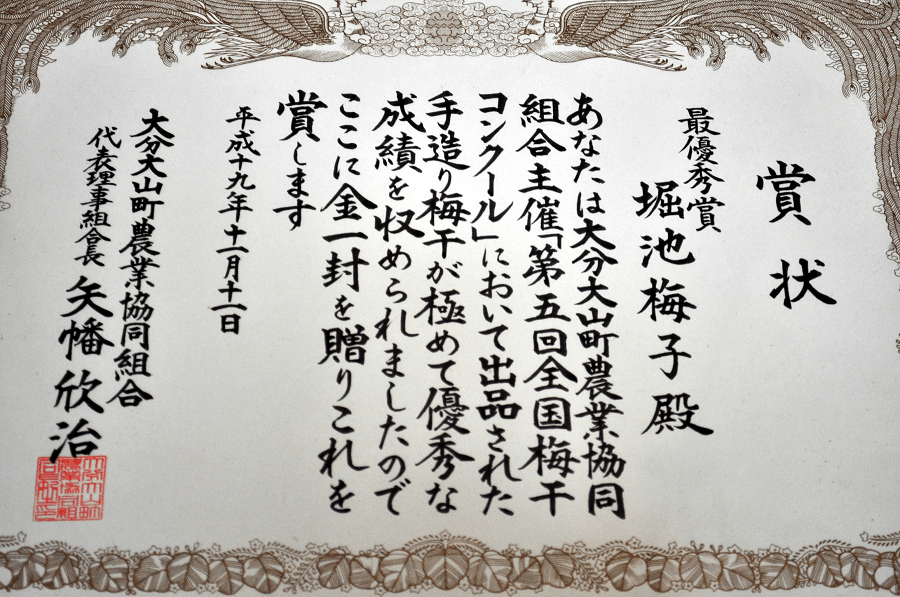 賞状
最優秀賞
堀池梅子殿
あなたは大分大山町農業協同
組合主催「第五回全国梅干
コンクール」において出品された
手造り梅干が極めて優秀な
成績を収められましたので
ここに金一封を贈りこれを
賞します
平成十九年十一月十一日
大分大山町農業協同組合
代表理事組合長 矢幡欣治